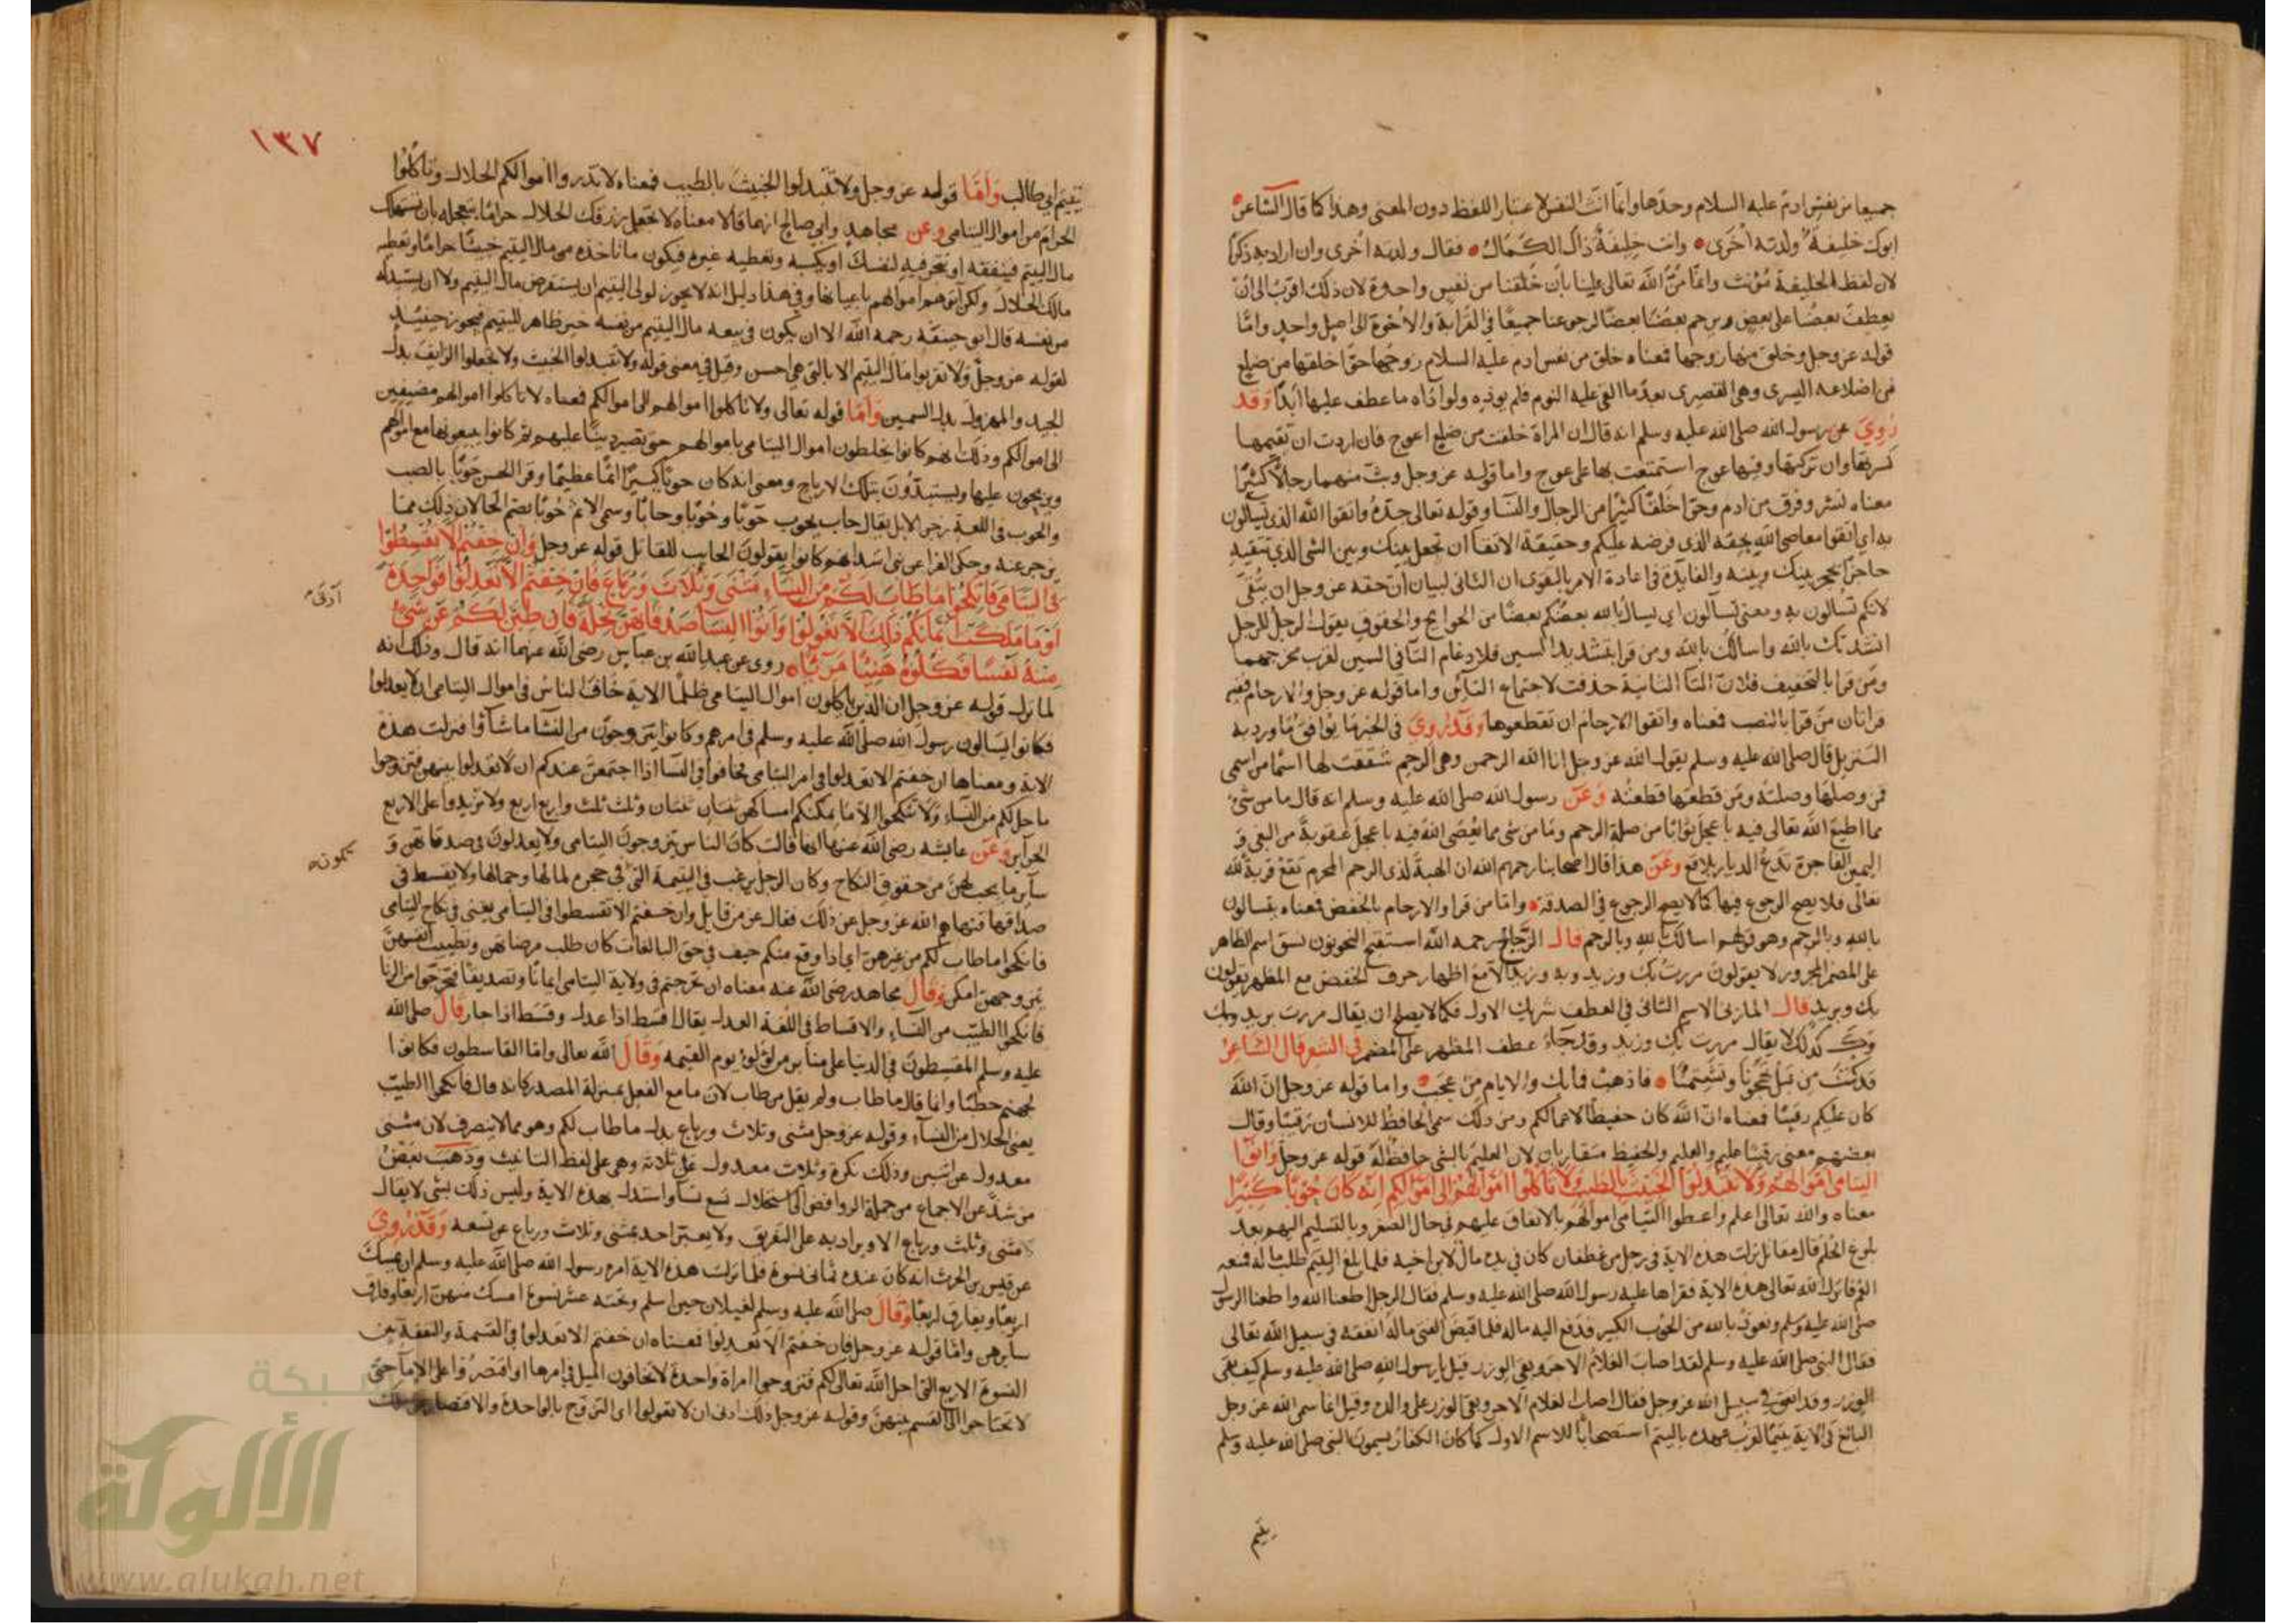 جميعا من نفس ادم عليه السلام وحدها وانما انث النفس لاعتبار اللفظ دون المعنى وهذا كما قال الشاعر
ابوك خليفة ولدته اخرى وانت خليفة ذاك الكمال فقال ولدته اخرى وان اراد به ذكرا
لان لفظ الخليفة مؤنث وانما من الله تعالى علينا بان خلقنا من نفس واحدة لان ذلك اقرب الى ان
يعطف بعضنا على بعض ويرحم بعضنا بعضا لرجوعنا جميعا في القرابة والاخوة الى اصل واحد واما
قوله عز وجل وخلق منها زوجها فمعناه خلق من نفس ادم عليه السلام زوجها حوا خلقها من ضلع
من اضلاعه اليسرى وهي القصيرى بعد ما القى عليه النوم فلم يوذه ولو اذاه ما عطف عليها ابدا وقد
روي عن رسول الله صلى الله عليه وسلم انه قال ان المراة خلقت من ضلع اعوج فان اردت ان تقيمها
كسرتها وان تركتها وفيها عوج استمتعت بها على عوج واما قوله عز وجل وبث منهما رجالا كثيرا
معناه نشر وفرق من ادم وحوا خلقا كثيرا من الرجال والنسا وقوله تعالى جده واتقوا الله الذي تسالون
به اي اتقوا معاصي الله بحقه الذي فرضه عليكم وحقيقة الاتقا ان تجعل بينك وبين الشي الذي تتقيه
حاجزا يحجز بينك وبينه والفايدة في اعادة الامر بالتقوى ان الثاني لبيان ان حقه عز وجل ان يتقى
لانكم تسالون به ومعنى تسالون اي يسال بالله بعضكم بعضا من الحوايج والحقوق يقول الرجل للرجل
انشدتك بالله واسالك بالله ومن قرا بتشديد السين فلادغام التا في السين لقرب مخرجهما
ومن قرا بالتخفيف فلان التا الثانية حذفت لاجتماع التائين واما قوله عز وجل والارحام ففيه
قراتان من قرا بالنصب فمعناه واتقوا الارحام ان تقطعوها وقد روي في الخبر ما يوافق ما ورد به
التنزيل قال صلى الله عليه وسلم يقول الله عز وجل انا الله الرحمن وهي الرحم شققت لها اسما من اسمي
فمن وصلها وصلته ومن قطعها قطعته وعن رسول الله صلى الله عليه وسلم انه قال ما من شئ
مما اطيع الله تعالى فيه باعجل ثوابا من صلة الرحم وما من شي مما يعصى الله فيه باعجل عقوبة من البغي و
اليمين الفاجرة تدع الديار بلاقع وعن هذا قال اصحابنا رحمهم الله ان الهبة لذي الرحم المحرم تقع قربة لله
تعالى فلا يصح الرجوع فيها كما لا يصح الرجوع في الصدقة واما من قرا والارحام بالخفض فمعناه تسالون
بالله وبالرحم وهو قولهم اسالك بالله وبالرحم قال الزجاج رحمه الله استقبح النحويون نسق اسم الظاهر
على المضمر المجرور لا يقولون مررت بك وزيد وبه وزيد الا مع اظهار حرف الخفض مع المظهر يقولون
بك وبزيد قال المازني الاسم الثاني في العطف شريك الاول فكما لا يصلح ان يقال مررت بزيد وبك
وك كذلك لا يقال مررت بك وزيد وقد جاء عطف المظهر على المضمر في الشعر قال الشاعر
قد كنت من قبل تهجونا وتشتمنا فاذهب فما بك والايام من عجب واما قوله عز وجل ان الله
كان عليكم رقيبا فمعناه ان الله كان حفيظا لاعمالكم ومن ذلك سمي الحافظ للانسان رقيبا وقال
بعضهم معنى رقيبا عليم والعليم والحفيظ متقاربان لان العليم بالشي حافظ له قوله عز وجل واتوا
اليتامى اموالهم ولا تتبدلوا الخبيث بالطيب ولا تاكلوا اموالهم الى اموالكم انه كان حوبا كبيرا
معناه والله تعالى اعلم واعطوا اليتامى اموالهم بالانفاق عليهم في حال الصغر وبالتسليم اليهم بعد
بلوغ الحلم قال مقاتل نزلت هذه الاية في رجل من غطفان كان في يده مال لابن اخيه فلما بلغ اليتيم طلب ماله فمنعه
العم فانزل الله تعالى هذه الاية فقراها عليه رسول الله صلى الله عليه وسلم فقال الرجل اطعنا الله واطعنا الرسول
صلى الله عليه وسلم ونعوذ بالله من الحوب الكبير فدفع اليه ماله فلما قبض الفتى ماله انفقه في سبيل الله تعالى
فقال النبي صلى الله عليه وسلم لقد اصاب الغلام الاجر وبقي الوزر قيل يا رسول الله صلى الله عليه وسلم كيف بقي
الوزر وقد انفق في سبيل الله عز وجل فقال اصاب الغلام الاجر وبقي الوزر على والده وقيل انما سمى الله عز وجل
البالغ في الاية يتيما لقرب عهده باليتم استصحابا للاسم الاول كما كان الكفار يسمون النبي صلى الله عليه وسلم
يتيم
١٣٧
يتيم ابي طالب واما قوله عز وجل ولا تتبدلوا الخبيث بالطيب فمعناه لا تذروا اموالكم الحلال وتاكلوا
الحرام من اموال اليتامى وعن مجاهد وابي صالح انهما قالا معناه لا تجعل رزقك الحلال حراما بتعجله بان تستهلك
مال اليتيم فينفقه او تتجر فيه لنفسك او يكسبه وتعطيه غيره فيكون ما تاخذه من مال اليتيم خبيثا حراما وتعطيه
مالك الحلال ولكن اتوهم اموالهم باعيانها وفي هذا دليل انه لا يجوز لولي اليتيم ان يستقرض مال اليتيم ولا ان يستبدله
من نفسه قال ابو حنيفة رحمه الله الا ان يكون في بيعه مال اليتيم من نفسه خير ظاهر لليتيم فيجوز حينئذ
لقوله عز وجل ولا تقربوا مال اليتيم الا بالتي هي احسن وقيل في معنى قوله ولا تتبدلوا الخبيث ولا تجعلوا الزايف بدل
الجيد والمهزول بدل السمين واما قوله تعالى ولا تاكلوا اموالهم الى اموالكم فمعناه لا تاكلوا اموالهم مضيفين
الى اموالكم وذلك انهم كانوا يخلطون اموال اليتامى باموالهم حتى تصير دينا عليهم ثم كانوا يبيعونها مع اموالهم
ويربحون عليها ويستبدون بتلك الارباح ومعنى انه كان حوبا كبيرا اثما عظيما وقرا الحسن حوبا بالنصب
والحوب في اللغة زجر الابل يقال حاب يحوب حوبا وحوبا وحابا وسمي الاثم حوبا بضم الحا لان ذلك مما
يزجر عنه وحكى الفرا عن بني اسد انهم كانوا يقولون الحايب للقاتل قوله عز وجل وان خفتم الا تقسطوا
في اليتامى فانكحوا ما طاب لكم من النساء مثنى وثلاث ورباع فان خفتم الا تعدلوا فواحدة
او ما ملكت ايمانكم ذلك الا تعولوا واتوا النساء صدقاتهن نحلة فان طبن لكم عن شئ
ادنى
منه نفسا فكلوه هنيئا مريئا روى عن عبد الله بن عباس رضي الله عنهما انه قال وذلك انه
لما نزل قوله عز وجل ان الذين ياكلون اموال اليتامى ظلما الاية خاف الناس في اموال اليتامى ان لا يعدلوا
فكانوا يسالون رسول الله صلى الله عليه وسلم في امرهم وكانوا يتزوجون من النسا ما شاؤا فنزلت هذه
الاية ومعناها ان خفتم الا تعدلوا في امر اليتامى فخافوا في النسا اذا اجتمعن عندكم ان لا تعدلوا بينهن فتزوجوا
ما حل لكم من النساء ولا تنكحوا الا ما يمكنكم امساكهن ثنتان ثنتان وثلث ثلث واربع اربع ولا تزيدوا على الاربع
الحراير وعن عايشه رضي الله عنها انها قالت كان الناس يتزوجون اليتامى ولا يعدلون في صدقاتهن و
ساير ما يجب لهن من حقوق النكاح وكان الرجل يرغب في اليتيمة التي في حجره لمالها وجمالها ولا يقسط في
صداقها فنهاهم الله عز وجل عن ذلك فقال عز من قايل وان خفتم الا تقسطوا في اليتامى يعني في نكاح اليتامى
فانكحوا ما طاب لكم من غيرهن اي اذا وقع منكم حيف في حق البالغات كان طلب مرضاتهن وتطييب انفسهن
امكن وقال مجاهد رضي الله عنه معناه ان تحرجتم في ولاية اليتامى ايمانا وتصديقا فتحرجوا من الزنا
فانكحوا الطيب من النساء والاقساط في اللغة العدل يقال اقسط اذا عدل وقسط اذا جار قال صلى الله
عليه وسلم المقسطون في الدنيا على منابر من لؤلؤ يوم القيمه وقال الله تعالى واما القاسطون فكانوا
لجهنم حطبا وانما قال ما طاب ولم يقل من طاب لان ما مع الفعل بمنزلة المصدر كانه قال فانكحوا الطيب
يعني الحلال من النساء وقوله عز وجل مثنى وثلاث ورباع بدل ما طاب لكم وهو مما لا ينصرف لان مثنى
معدول عن اثنين وذلك نكرة وثلاث معدول عن ثلاثة وهي على لفظ التانيث وذهب بعض
من شذ عن الاجماع من جملة الروافض الى استحلال تسع نسا واستدل بهذه الاية وليس ذلك بشي لا يقال
مثنى وثلث ورباع الا ويراد به على التفريق ولا يعبر احد بمثنى وثلاث ورباع عن تسعه وقد روي
عن قيس بن الحرث انه كان عنده ثماني نسوة فلما نزلت هذه الاية امره رسول الله صلى الله عليه وسلم ان يمسك
اربعا ويفارق اربعا وقال صلى الله عليه وسلم لغيلان حين اسلم وتحته عشر نسوة امسك منهن اربعا وفارق
سايرهن واما قوله عز وجل فان خفتم الا تعدلوا فمعناه ان خفتم الا تعدلوا في القسمة والنفقة بين
النسوة الاربع التي احل الله تعالى لكم فتزوجوا امراة واحدة لا تخافون الميل في امرها او اقتصروا على الاما حتى
لا تحتاجوا الى القسم بينهن وقوله عز وجل ذلك ادنى ان لا تعولوا اي التزوج بالواحدة والاقتصار
شبكة
الألوكة
www.alukah.net